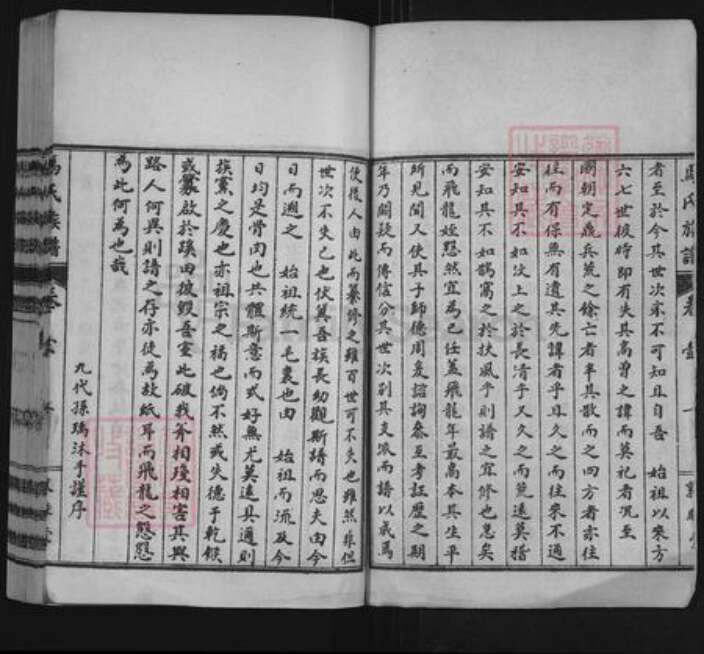 馬氏族譜 卷壹 一
者至於今其世次寀不可知且自吾 始祖以來方
六七世彼時即有失其高曾之諱而莫祀者況至
國朝定鼎兵荒之餘亡者半其散而之四方者亦往
往而有保無有遺其先諱者乎且久之而往來不通
安知其不如汶上之於長清乎又久之而荒遠莫稽
安知其不如鵲窩之於扶風乎則譜之宜修也急矣
而飛龍姪慇然宜為己任蓋飛龍年最高本其生平
所見聞又使其子師德周爰諮詢參互考証歷之期
年乃闕疑而傳信分其世次別其支派而譜以成焉
使後人由此而纂修之雖百世可不失也雖然非但
世次不失已也伏冀吾族長幼觀斯譜而思夫由今
日而遡之 始祖統一毛裏也由 始祖而流及今
日均是骨肉也共體斯意而式好無尤莫遠具邇則
族黨之慶也亦祖宗之福也倘不然或失德于乾餱
或釁啟於蹊田彼毀吾室此破我斧相殘相害其與
路人何異則譜之存亦徒為故紙耳而飛龍之慇慇
為此何為也哉
九代孫瑀沐手謹序
馬氏族譜 卷